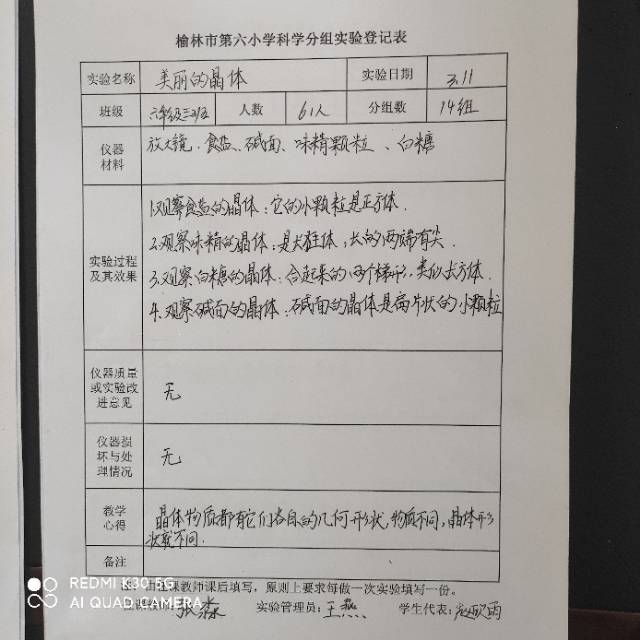 榆林市第六小学科学分组实验登记表
实验名称 美丽的晶体 实验日期 3.11
班级 六年级三班 人数 61人 分组数 14组
仪器材料 放大镜、食盐、碱面、味精颗粒、白糖
实验过程及其效果
1.观察食盐的晶体：它的小颗粒是正方体.
2.观察味精的晶体：是长柱体，长的，两端有尖.
3.观察白糖的晶体：合起来的，两个梯形，类似长方体.
4.观察碱面的晶体：碱面的晶体是片状的小颗粒
仪器质量或实验改进意见 无
仪器损坏与处理情况 无
教学心得 晶体物质都有它们各自的几何形状，物质不同，晶体形
状就不同.
备注
课教师课后填写，原则上要求每做一次实验填写一份。
实验管理员：王燕 学生代表：
REDMI K30 5G
AI QUAD CAMERA